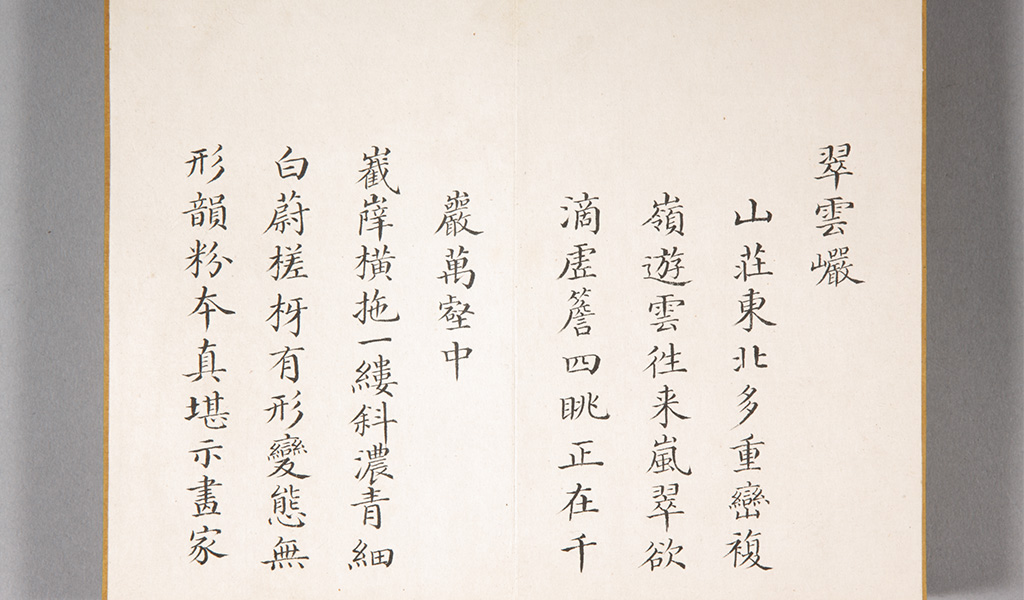 翠雲巖
山莊東北多重巒複
嶺遊雲往来嵐翠欲
滴虗簷四眺正在千
巖萬壑中
嶻嶭横拖一縷斜濃青細
白蔚槎枒有形變態無
形韻粉夲真堪示畫家